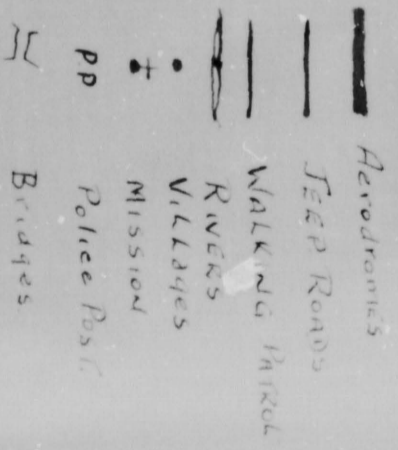 Aerodromes
JEEP ROADS
WALKING PATROL
RIVERS
VILLAGES
MISSION
PP Police Post
Bridges.